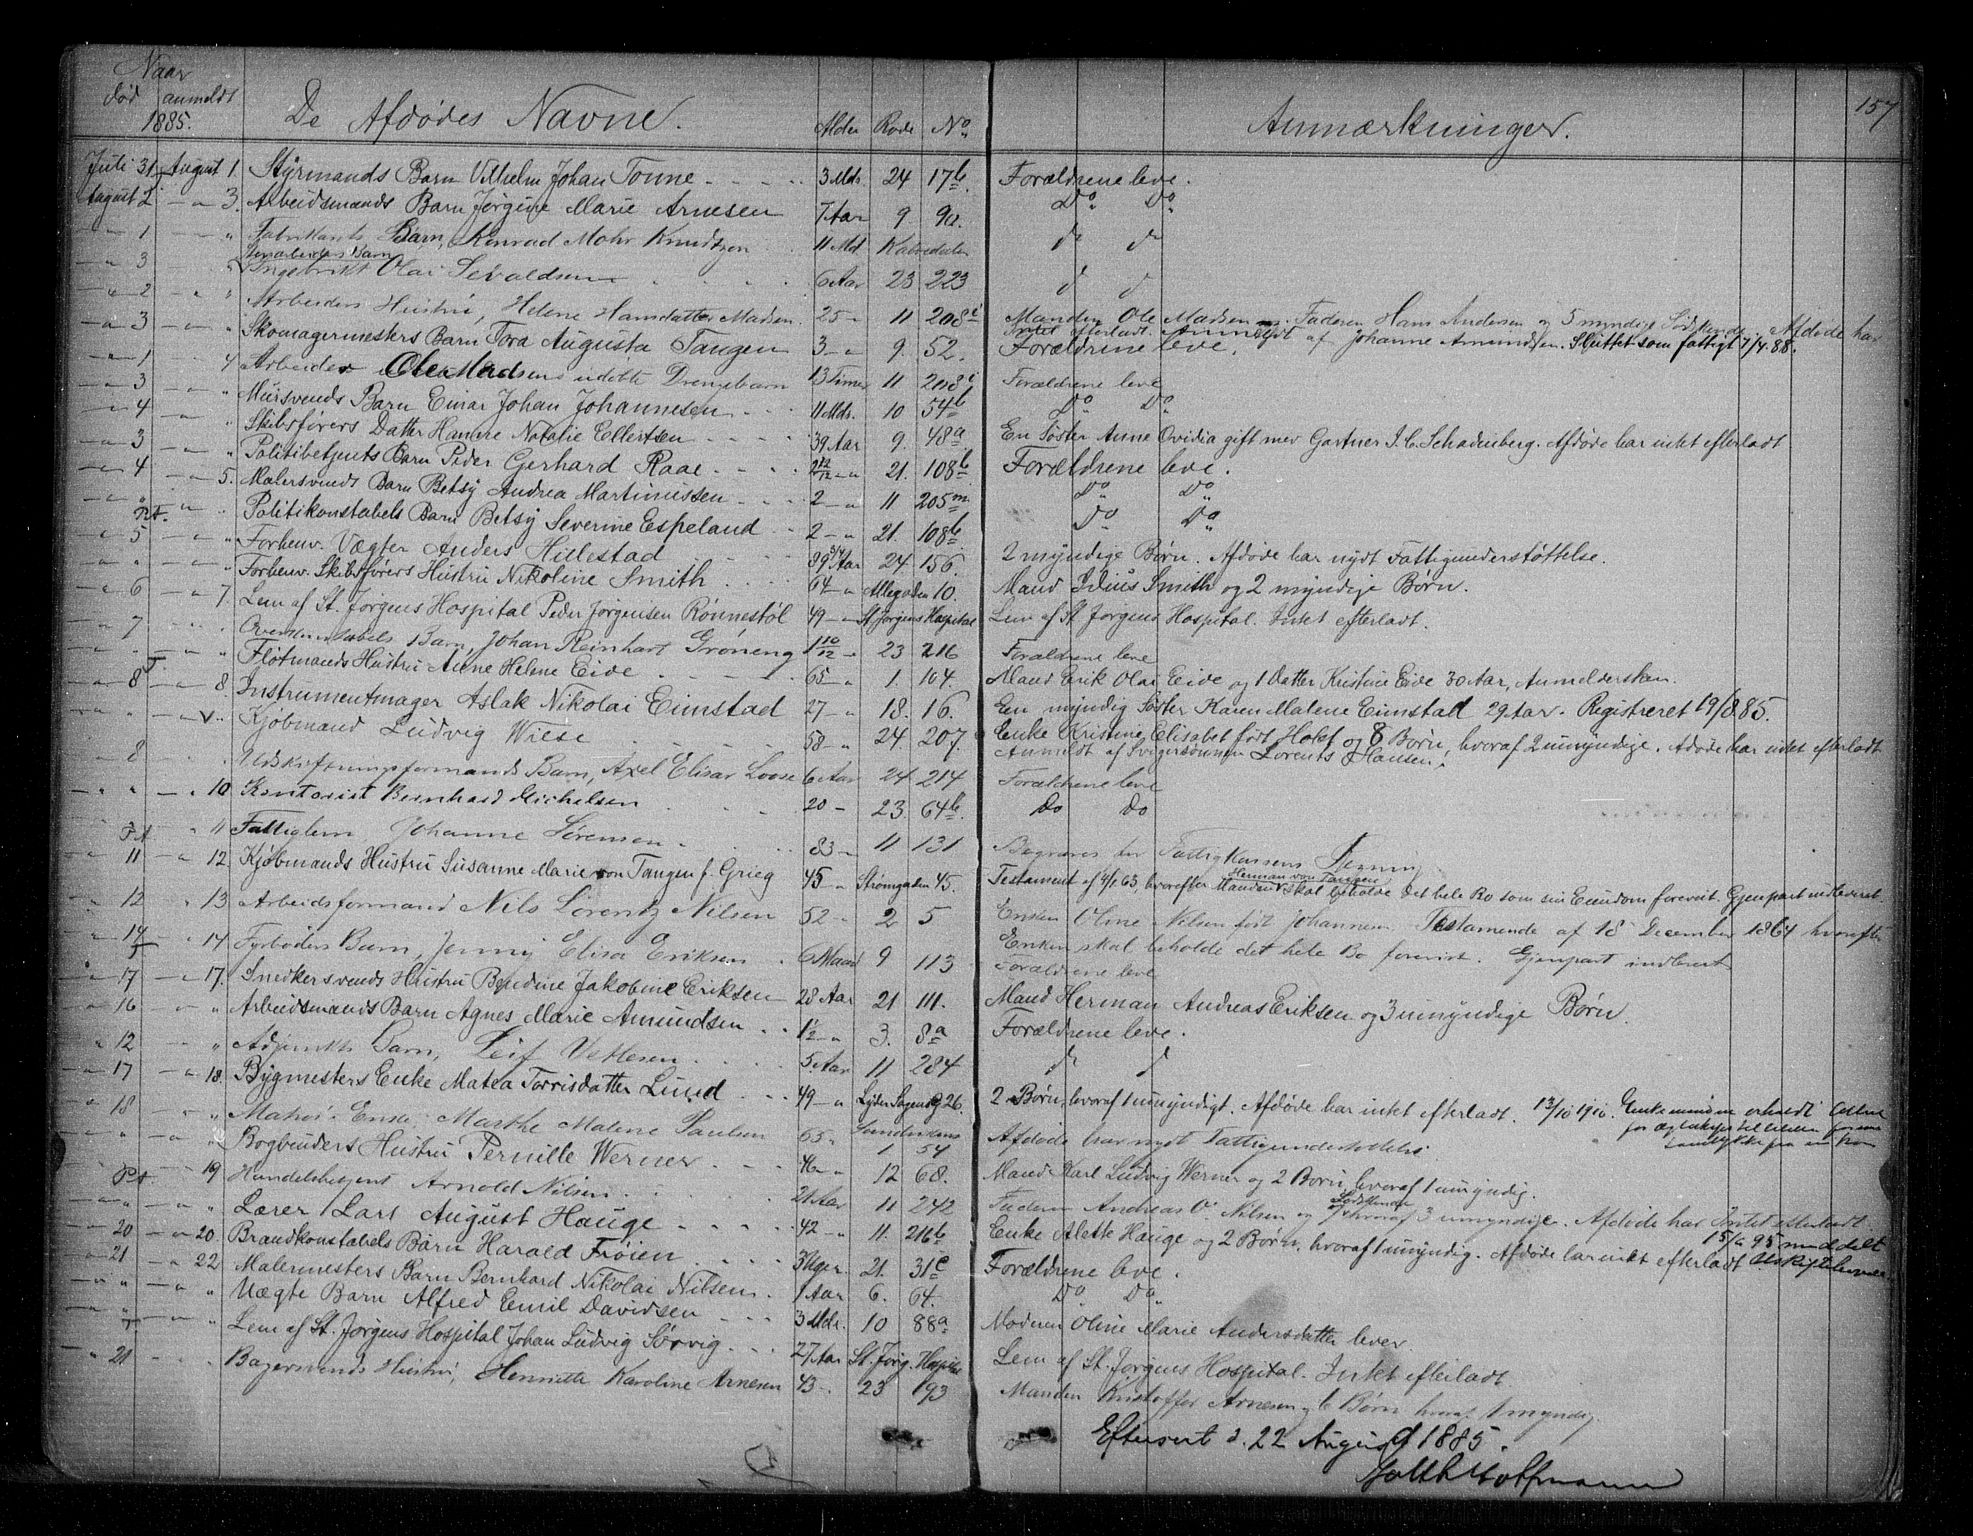 157
Naar
død anmeldt De Afdødes Navne. Alder Rode No Anmærkninger.
1885.
Juli 31 August 1. Styrmands Barn Vilhelm Johan Tonne 3 Mdr. 24 17b Forældrene leve.
August 2 - " 3. Arbeidsmands Barn Jørgine Marie Arnesen 7 Aar 9 9a. Do Do
" 1 - " Fabrikants Barn, Konrad Mohr Knudtzon 11 Md Kalvedalen d d
" 3 " Barn
Ingebrikt Olai Sevaldsen 6 Aar 23 223 d d
" 2 - " " Arbeiders Hustru, Helene Hansdatter Madsen. 25 - 11 208i Manden Ole Madsen. Faderen Hans Andersen og 5 myndige Sødskende. Afdøde har
Intet efterladt. Anmeldt af Johanne Amundsen. Sluttet som fattigt 7/4.88.
" 3 - " Skomagermesters Barn Tora Augusta Tangen 3 - " 9. 52. Forældrene leve.
" 1 - 4 Arbeider Ole Madsens udøbte Drengebarn 13 Timer 11 208i Forældrene leve
" 3 - " Mursvends Barn Einar Johan Johannesen 11 Mdr. 10 54b Do Do
" 4 - " Skibsførers Datter Hanne Natalie Ellertsen 39 Aar 9. 48a En Søster Anne Ovidia gift med Gartner J. C. Schadenberg. Afdøde har intet efterladt
" 3 - " Politibetjents Barn Peder Gerhard Raae 2 - " 21. 108b Forældrene leve.
" 4 - " 5. Malersvends Barn Betsy Andrea Martinussen 2 - " 11 205m Do Do
" - " Politikonstabels Barn Betsy Severine Espeland 2 - " 21. 108b Do Do
" 5 " Forhenv. Vægter Anders Hillestad 89 Aar 24 156. 2 myndige Børn. Afdøde har nydt Fattigunderstøttelse.
" " - " Forhenv. Skibsførers Hustru Nikoline Smith 64 - " Allegaden 10. Mand Julius Smith og 2 myndige Børn.
" 6 - " 7. Lem af St. Jørgens Hospital Peder Jørgensen Rønnestøl 49 - " St Jørgens Hospital Lem af St Jørgens Hospital. Intet efterladt.
" 7 " Overkonstabels Barn, Johan Reinhart Grøneng 1 10/12 - " 23 216 Forældrene leve
" " Fløtmands Hustru Anne Helene Eide 65 - " 1. 104. Mand Erik Olai Eide og 1 Datter Kristine Eide 30 Aar, Anmeldersken.
" 8 - " 8. Instrumentmager Aslak Nikolai Eimstad 27 - " 18. 16. En myndig Søster Karen Malene Eimstad 29 Aar. Registreret 19/8.85.
" " - " Kjøbmand Ludvig Wiese 58 - " 24. 207. Enke Kristine Elisabet født Holef og 8 Børn, hvoraf 2 umyndige. Afdøde har intet efterladt
Anmeldt af Svigersønnen Lorents J Hansen.
" 8 Udskiftningsformands Barn, Axel Elisar Loose 6 Aar 24 214 Forældrene leve
" " - " 10 Kontorist Bernhard Michelsen 20 - 23 64b. Do Do
" 11 Fattiglem Johanne Sørensen 83 - 11 131 Begraves for Fattigkassens Regning.
" 11 - " 12. Kjøbmands Hustru Susanne Marie von Tangen f. Grieg 45 - " Strømgaden 45. Testament af 4/1.63, hvorefter Manden Herman von Tangen skal beholde det hele Bo som sin Eiendom forevist. Gjenpart indleveret.
" 12 " 13 Arbeidsformand Nils Lorentz Nilsen 52 " 2 5 Enken Oline Nilsen født Johannesen Testamende af 18 December 1861 hvorefter
Enken skal beholde det hele Bo forevist. Gjenpart indleveret
" 14 - " 14. Fyrbøders Barn, Jenny Elisa Eriksen 6 Maaned 9 113 Forældrene leve
" 17 - " 17. Snedkersvends Hustru Bendine Jakobine Eriksen 28 Aar 21 111. Mand Herman Andreas Eriksen og 3 umyndige Børn.
" 16 " " Arbeidsmands Barn Agnes Marie Amundsen 1½ - " 3. 8a Forældrene leve.
" 12 " Adjunkts Barn, Leif Vetlesen 5 Aar 11 284 d d
" 17 - " 18. Bygmesters Enke Matea Torrisdatter Lund 49 - " Lyder Sagensg 26. 2 Børn, hvoraf 1 umyndigt. Afdøde har intet efterladt. 13/10 1910.
" 18 " Enke, Marthe Malene Paulsen 65 " 1 54 Afdøde har nydt Fattigunderstøttelse.
" " " Bogbinders Hustru Pernille Werner 46 - " 12 68. Mand Karl Ludvig Werner og 2 Børn, hvoraf 1 umyndig.
" 19 Handelsbetjent Arnold Nilsen 21 Aar 11 242 Faderen Andreas O. Nilsen og Sødskende hvoraf 3 umyndige. Afdøde har Intet efterladt.
" " Lærer Lars August Hauge 42 - " 11. 216b Enke Alette Hauge og 2 Børn, hvoraf 1 umyndig. Afdøde har intet efterladt
" 20 - " 20. Brandkonstabels Barn Harald Frøien 3 Uger. 21. 31c Forældrene leve.
" 21 - " 22 Malermesters Barn Bernhard Nikolai Nilsen 1 Aar 6. 64. Do Do
" " - " " Uægte Barn Alfred Emil Davidsen 3 Mdr. 10 88a Moderen Oline Marie Andersdatter lever.
" " Lem af St. Jørgens Hospital Johan Ludvig Sørvig 27 Aar St. Jørg. Hospital Lem af St. Jørgens Hospital. Intet efterladt
" 21 - " Bagersvends Hustru, Henriette Karoline Arnesen 43 - 23 193 Manden Kristoffer Arnesen og 6 Børn hvoraf 1 myndig.
Efterseet d. 22 August 1885.